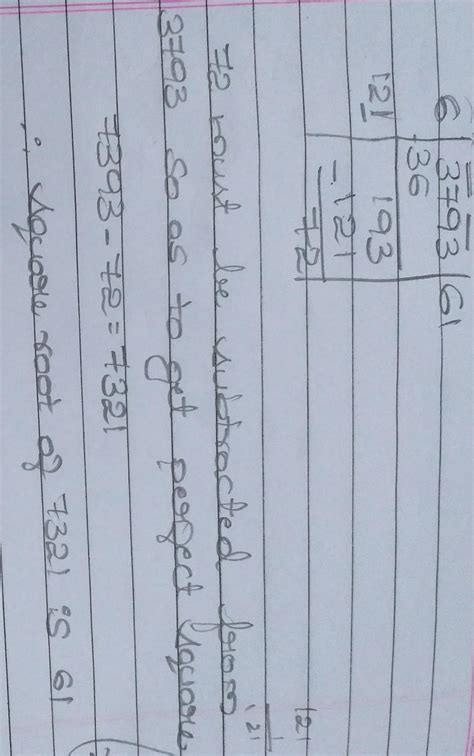 6 3793 61
36
121 193
-121
72
121
121
72 must be subtracted from
3793 so as to get perfect square
7393-72=7321
∴ square root of 7321 is 61